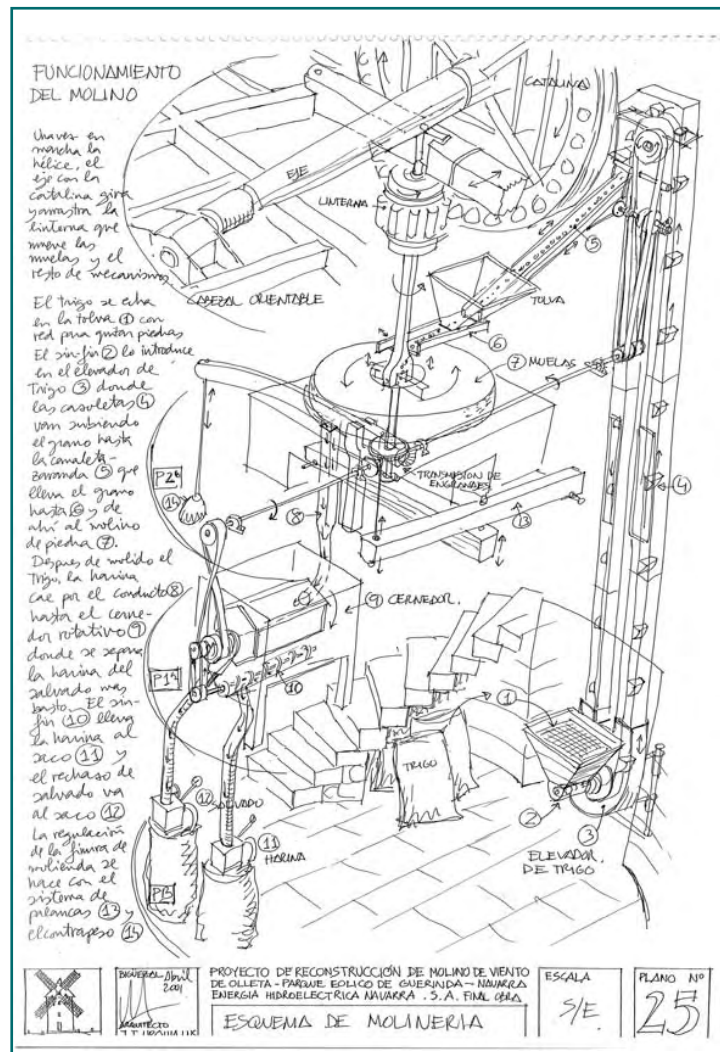 FUNCIONAMIENTO
DEL MOLINO
Una vez en
marcha la
hélice, el
eje con la
catalina gira
y arrastra la
linterna que
mueve las
muelas y el
resto de mecanismos
El trigo se echa
en la tolva ① con
red para quitar piedras
El sin-fin ② lo introduce
en el elevador de
Trigo ③ donde
las casoletas ④
van subiendo
el grano hasta
la canaleta-
zaranda ⑤ que
lleva el grano
hasta ⑥ y de
ahí al molino
de piedra ⑦.
Despues de molido el
Trigo, la harina
cae por el conducto ⑧
hasta el cerne-
dor rotativo ⑨
donde se separa
la harina del
salvado mas
basto. El sin-
fin ⑩ lleva
la harina al
saco ⑪ y
el rechaso de
salvado va
al saco ⑫
La regulación
de la finura de
molienda se
hace con el
sistema de
palancas ⑬ y
el contrapeso ⑭
CATALINA
EJE
LINTERNA
CABEZAL ORIENTABLE
TOLVA
⑤
⑥
⑦ MUELAS
P2ª
⑭
TRANSMISION DE
ENGRANAJES
⑧
⑬
④
⑨ CERNEDOR.
P1ª
10
①
TRIGO
⑫ SALVADO
⑪
HARINA
②
③
ELEVADOR
DE TRIGO
Abril
2001
ARQUITECTO
PROYECTO DE RECONSTRUCCIÓN DE MOLINO DE VIENTO
DE OLLETA - PARQUE EOLICO DE GUERINDA - NAVARRA
ENERGIA HIDROELECTRICA NAVARRA. S.A. FINAL OBRA
ESQUEMA DE MOLINERIA
ESCALA
S/E
PLANO Nº
25